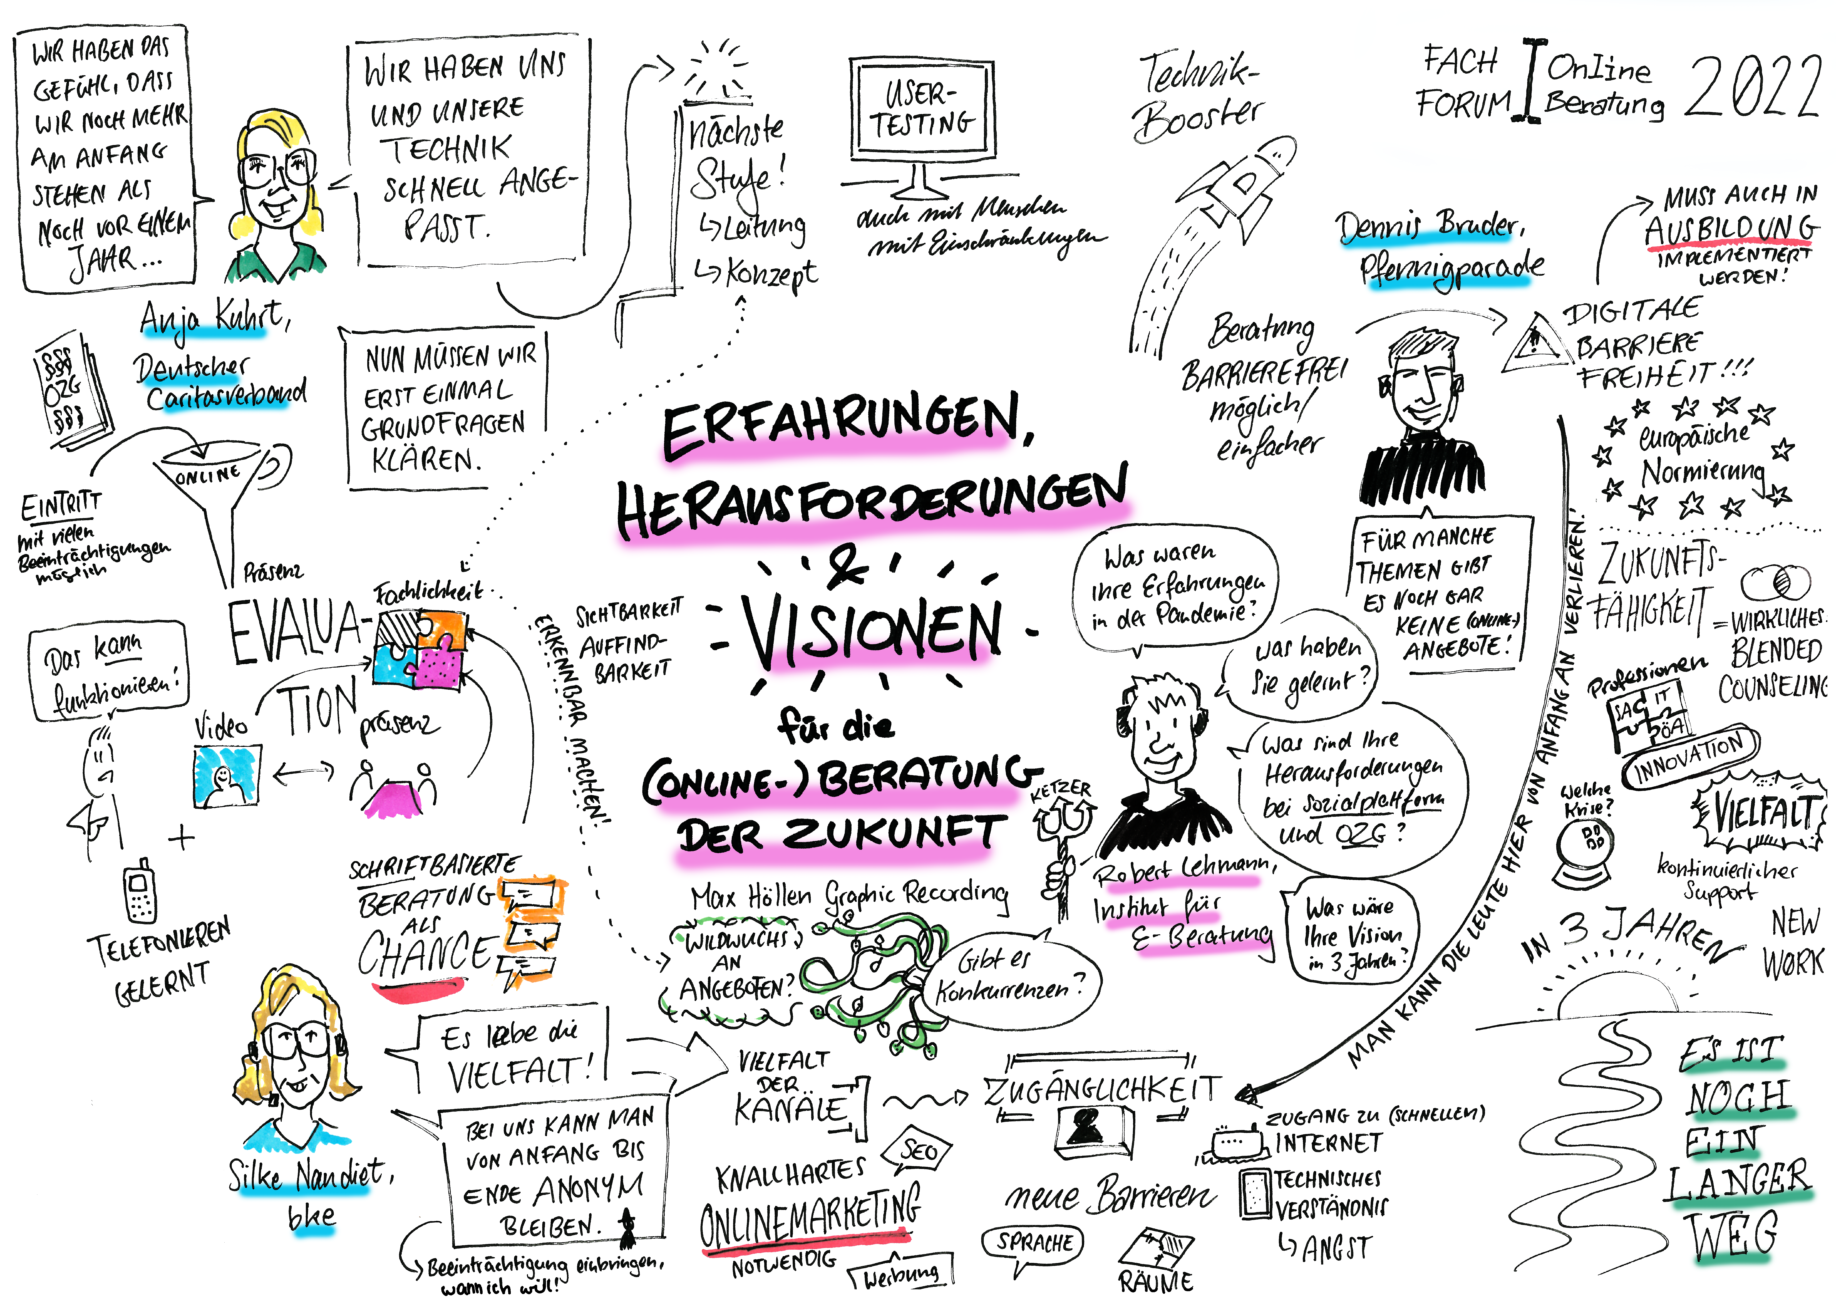 WIR HABEN DAS
GEFÜHL, DASS
WIR NOCH MEHR
AM ANFANG
STEHEN ALS
NOCH VOR EINEM
JAHR...
WIR HABEN UNS
UND UNSERE
TECHNIK
SCHNELL ANGE-
PASST.
Anja Kuhrt,
Deutscher
Caritasverband
NUN MÜSSEN WIR
ERST EINMAL
GRUNDFRAGEN
KLÄREN.
nächste
Stufe!
↳ Leitung
↳ Konzept
USER-
TESTING
auch mit Menschen
mit Einschränkungen
Technik-
Booster
FACH
FORUM
Online
Beratung
2022
Dennis Bruder,
Pfennigparade
MUSS AUCH IN
AUSBILDUNG
IMPLEMENTIERT
WERDEN!
Beratung
BARRIEREFREI
möglich/
einfacher
DIGITALE
BARRIERE
FREIHEIT!!!
europäische
Normierung
FÜR MANCHE
THEMEN GIBT
ES NOCH GAR
KEINE (ONLINE-)
ANGEBOTE!
§§§
OZG
§§§
ONLINE
EINTRITT
mit vielen
Beeinträchtigungen
möglich
Präsenz
EVALUA-
TION
Fachlichkeit
Video
präsenz
Das kann
funktionieren!
+
TELEFONIEREN
GELERNT
SCHRIFTBASIERTE
BERATUNG
ALS
CHANCE
SICHTBARKEIT
AUFFIND-
BARKEIT
ERKENNBAR MACHEN!
ERFAHRUNGEN,
HERAUSFORDERUNGEN
&
VISIONEN
für die
(ONLINE-) BERATUNG
DER ZUKUNFT
Max Höllen Graphic Recording
Was waren
Ihre Erfahrungen
in der Pandemie?
Was haben
Sie gelernt?
Was sind Ihre
Herausforderungen
bei Sozialplattform
und OZG?
Was wäre
Ihre Vision
in 3 Jahren?
KETZER
Robert Lehmann,
Institut für
E-Beratung
WILDWUCHS
AN
ANGEBOTEN?
Gibt es
Konkurrenzen?
MAN KANN DIE LEUTE HIER VON ANFANG AN VERLIEREN!
ZUKUNFTS-
FÄHIGKEIT
= WIRKLICHES
BLENDED
COUNSELING
Professionen
SAG
IT
ÖA
INNOVATION
Welche
Krise?
VIELFALT
kontinuierlicher
Support
IN 3 JAHREN
NEW
WORK
ES IST
NOCH
EIN
LANGER
WEG
Silke Nandiet,
bke
Es lebe die
VIELFALT!
BEI UNS KANN MAN
VON ANFANG BIS
ENDE ANONYM
BLEIBEN.
Beeinträchtigung einbringen,
wann ich will!
VIELFALT
DER
KANÄLE
SEO
KNALLHARTES
ONLINEMARKETING
NOTWENDIG
Werbung
ZUGÄNGLICHKEIT
neue Barrieren
SPRACHE
RÄUME
ZUGANG ZU (SCHNELLEM)
INTERNET
TECHNISCHES
VERSTÄNDNIS
↳ ANGST